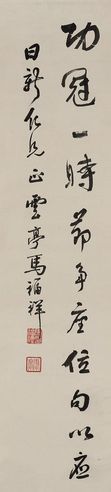 功冠一時節争座位句以应
日新仁兄正雲亭馬福祥